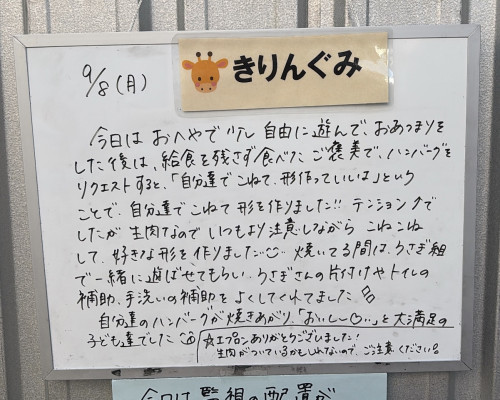 きりんぐみ
9/8(月)
今日は おへやで 少し 自由に遊んで、おあつまりを
した後は、給食を残さず食べた ご褒美で、ハンバーグを
リクエストすると、「自分達でこねて、形作っていいよ」という
ことで、自分達でこねて形を作りました!! テンション
でしたが 生肉なので いつもより注意しながら こねこね
して、好きな形を作りました 焼いてる間は、うさぎ組
で一緒に遊ばせてもらい、うさぎさんの片付けやトイレの
補助、手洗いの補助を よくしてくれてました
自分達のハンバーグが焼きあがり、「おいしー♡」と大満足の
子ども達でした
☆エプロンありがとうございました!
生肉がついているかもしれないので、ご注意ください。
今日は 監視の配置が